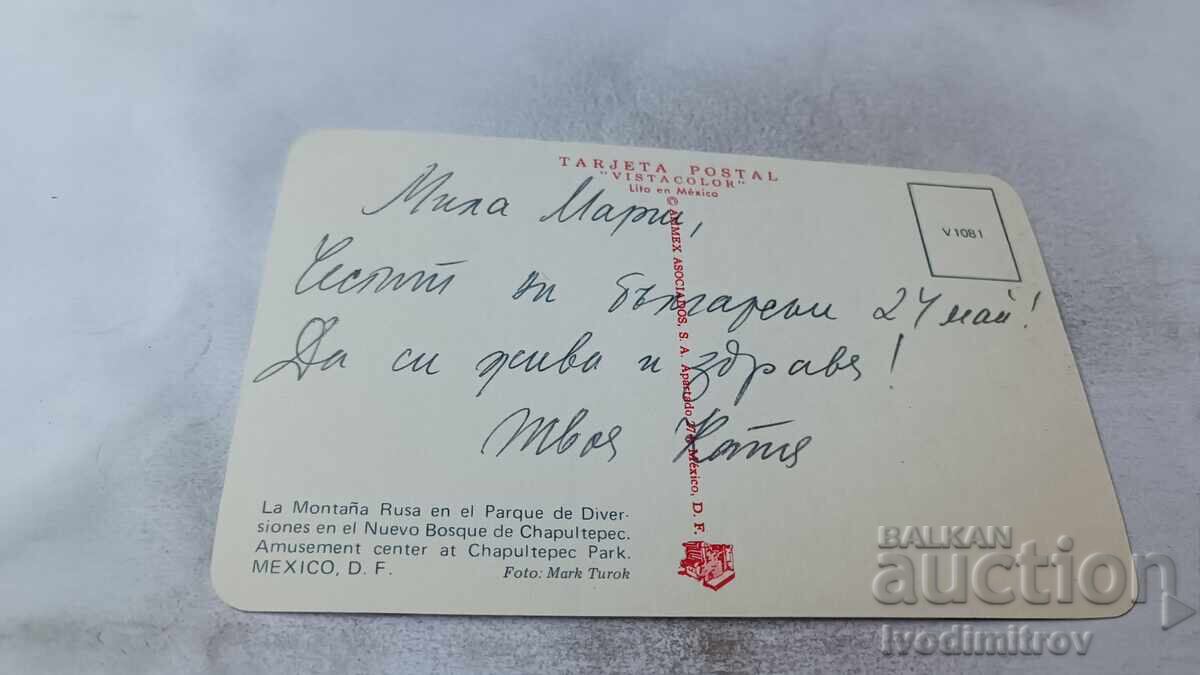 TARJETA POSTAL
"VISTACOLOR"
Lito en México
© AMMEX ASOCIADOS, S. A. Apartado México, D. F.
V1081
Мила Мари,
Честит български 24 май!
Да си жива и здрава!
Твоя Катя
La Montaña Rusa en el Parque de Diver-
siones en el Nuevo Bosque de Chapultepec.
Amusement center at Chapultepec Park.
MEXICO, D. F. Foto: Mark Turok
BALKAN
auction
Ivodimitrov